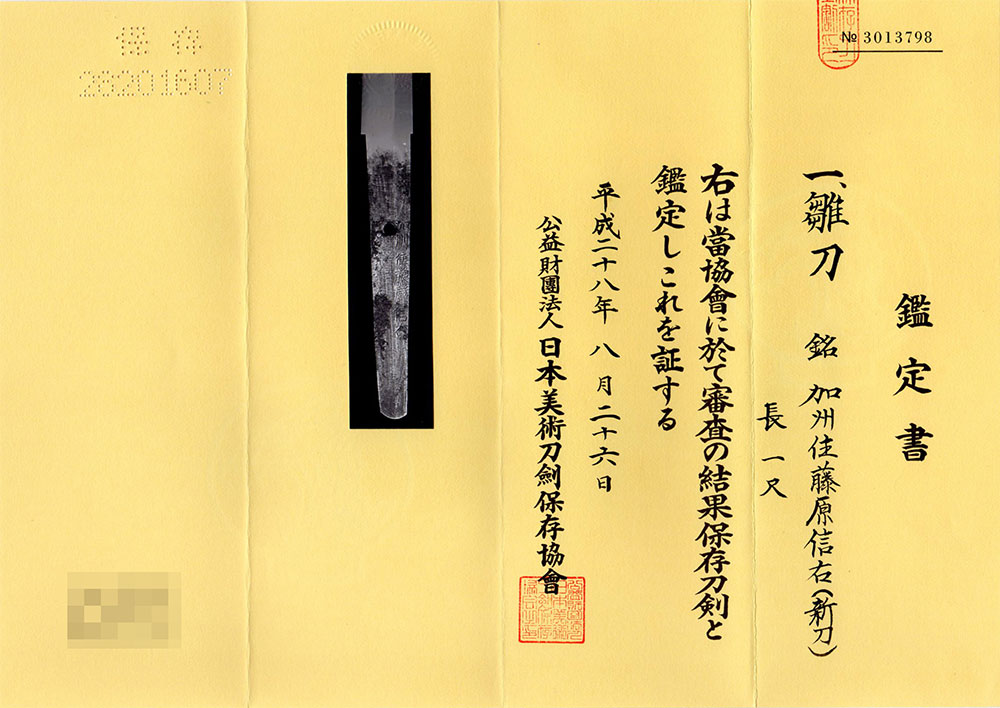 № 3013798
鑑定書
一、雛刀 銘 加州住藤原信右(新刀)
長一尺
右は當協會に於て審査の結果保存刀剣と
鑑定しこれを証する
平成二十八年八月二十六日
公益財團法人日本美術刀劍保存協會
保存
28201607